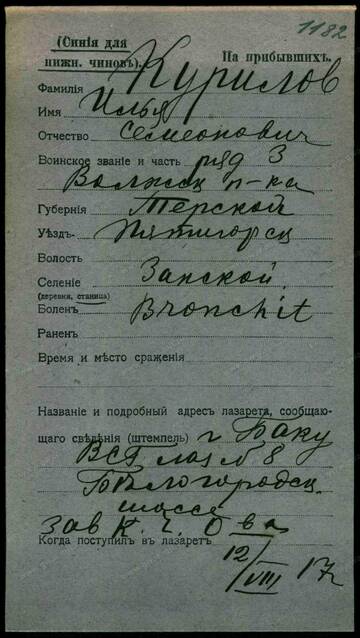 1182
(Синія для нижн. чиновъ).
На прибывшихъ.
Фамилія Курилов
Имя Илья
Отчество Семеонович
Воинское званіе и часть ряд 3
Волжск п-ка
Губернія Терской
Уѣздъ Пятигорск
Волость
Селеніе Занской
(деревня, станица)
Боленъ Bronchit
Раненъ
Время и мѣсто сраженія
Названіе и подробный адресъ лазарета, сообщаю-
щаго свѣдѣнія (штемпель) г Баку
ВСГ лаз № 8
Бѣлогородск.
шоссе
Зав К. Ч. О ва
Когда поступилъ въ лазаретъ
12/VIII 17